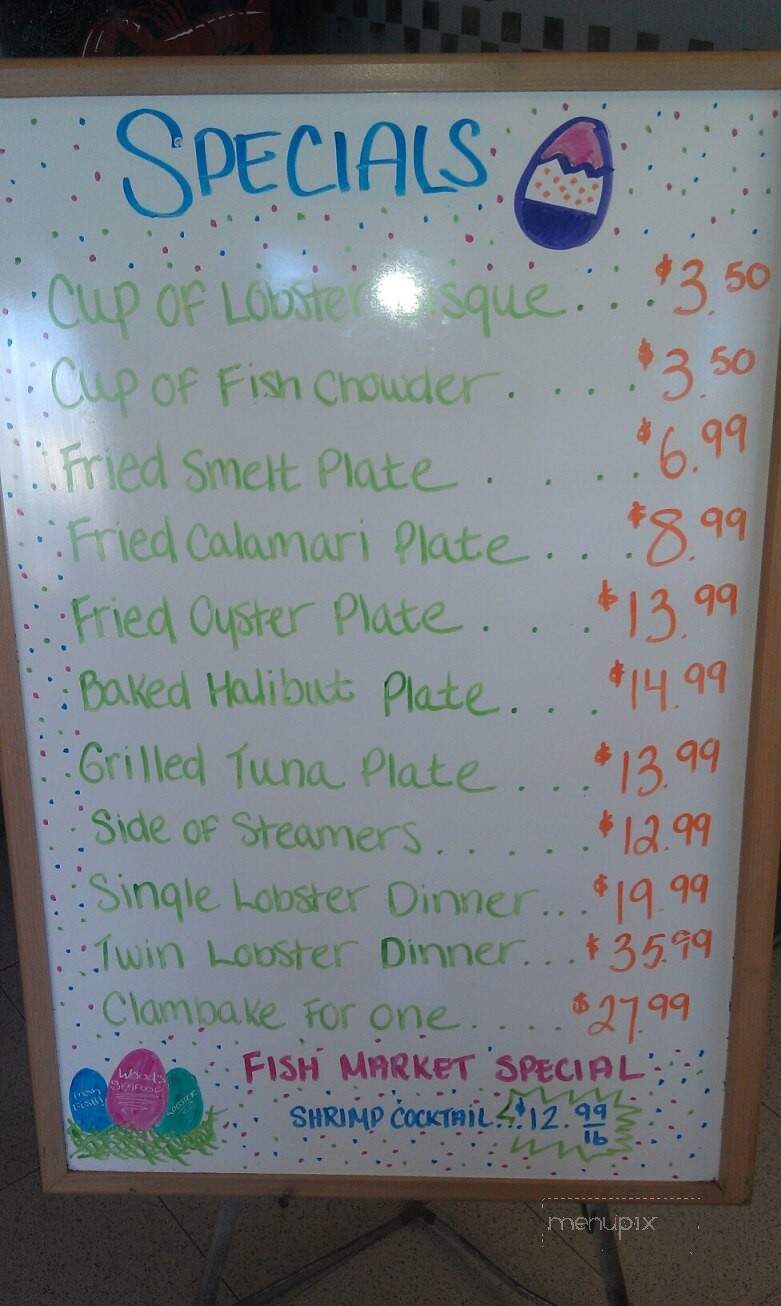 SPECIALS
Cup of Lobster Bisque . . . $3.50
Cup of Fish Chowder . . . . $3.50
Fried Smelt Plate . . . . $6.99
Fried Calamari Plate . . . . $8.99
Fried Oyster Plate . . . $13.99
Baked Halibut Plate . . . $14.99
Grilled Tuna Plate . . . $13.99
Side of Steamers . . . . . $12.99
Single Lobster Dinner... $19.99
Twin Lobster Dinner... $35.99
Clambake For one..... $27.99
FISH MARKET SPECIAL
SHRIMP COCKTAIL.. $12.99/lb
Fresh Fish!!
Wood's Seafood
Lobster
menupix